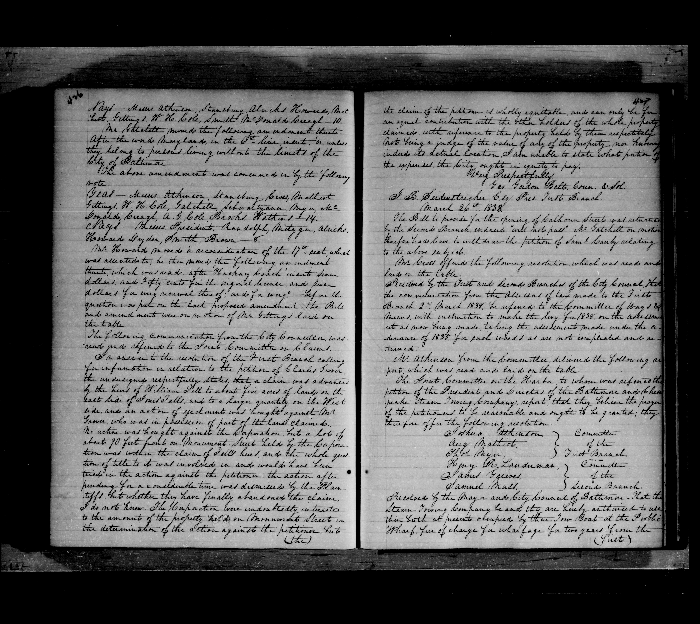 426
Nays — Messrs Atkinson, Stansbury, Alricks, Howard,
Gittings, W. H. Cole, McDonald, Creagh — 10.
Mr Gatchell moved the following amendment
After the words Maryland, in the line insert "or unless
they belong to persons living without the limits of the
City of Baltimore
The above amendment was concurred in by the following
vote
Yeas — Messrs Atkinson, Stansbury, Cross, Mathiot
Gittings, W. H. Cole, Gatchell, Mc
Donald, Creagh, A. G. Cole, Brooks, Watkins — 14.
Nays Messrs President, Randolph, Alricks,
Howard, Snyder, Smith, Brown — 8.
Mr Howard moved a reconsideration of the 17th sect which
was assented to, he then moved the following as an amend
ment, which was read, after insert "some
dollars and fifty cents for the original license and four
dollars for any renewal thereof" and for every before the
question was put on the last proposed amendment. The Bill
and amendment were on motion of Mr Gittings laid on
the table
The following communication from the City Counsellor, was
read and referred to the Joint Committee on Claims.
In answer to the resolution of the First Branch calling
for information in relation to the petition of Charles
the undersigned respectfully states, that a claim was advanced
by the heirs of to about five acres of lands on the
East side of Jones' Falls, and to a larger quantity on the West
side, and an action of ejectment was brought against Mr
who was in possession of part of the land claimed.
No action was brought against the Corporation but a lot of
about 90 feet front on Monument Street held by the Corpora
tion was within the claim of heirs and the whole ques
tion of title to it was involved in and would have been
tried in the action against the petitioner the action after
pending for a considerable time was dismissed by the Plain
tiffs but whether they have finally abandoned the claim
I do not know. The Corporation were undoubtedly interested
to the amount of the property held on Monument Street in
the determination of the action against the petitioner but
(the)
427
the claim of the petitioner is wholly equitable, and can only be for
an equal contribution with the other holders of the whole property
claimed, with reference to the property held by them respectively
Not being a judge of the value of any of the property, nor knowing
indeed its actual location, I am unable to state what portion of
the expenses, the City ought in equity to pay.
Very Respectfully
Geo Gordon Belt, Coun. & Sol.
J. B. Seidenstricker Esq Pres First Branch.
March 26th 1838
The Bill to provide for the opening of Calhoun Street was returned
by the Second Branch endorsed "will not pass" Mr Gatchell on motion
therefor had leave to withdraw the petition of Saml Canby relating
to the above subject.
Mr Cross offered the following resolution which was read and
laid on the table
Resolved by the First and Second Branches of the City Council, that
the communication from the Assessors of laid made to the First
Branch 2nd March 1838, be referred to the Committee of Ways &
Means, with instruction to make the levy for 1838 on the assessm
ent as now being made, taking the assessments made under the or
dinance of 1835 for such wards as are not completed and re
turned.
Mr Atkinson from the Committee delivered the following re
port, which was read and laid on the table
The Joint Committee on the Harbor, to whom was referred the
petition of the President and Directors of the Baltimore and
Steam Towing Company, report that they believe the prayer
of the petitioners to be reasonable and ought to be granted; they
therefore offer the following resolution
Joshua Atkinson } Committee
Aug. Mathiot } of the
First Branch.
Henry R. Louderman } Committee
James Frazier } of the
Samuel } Second Branch
Resolved by the Mayor and City Council of Baltimore, that the
Steam Towing Company be and they are hereby authorized to use
the berth at present occupied by their Tow Boat at the Public
Wharf, free of charge for wharfage for two years from the
(first)